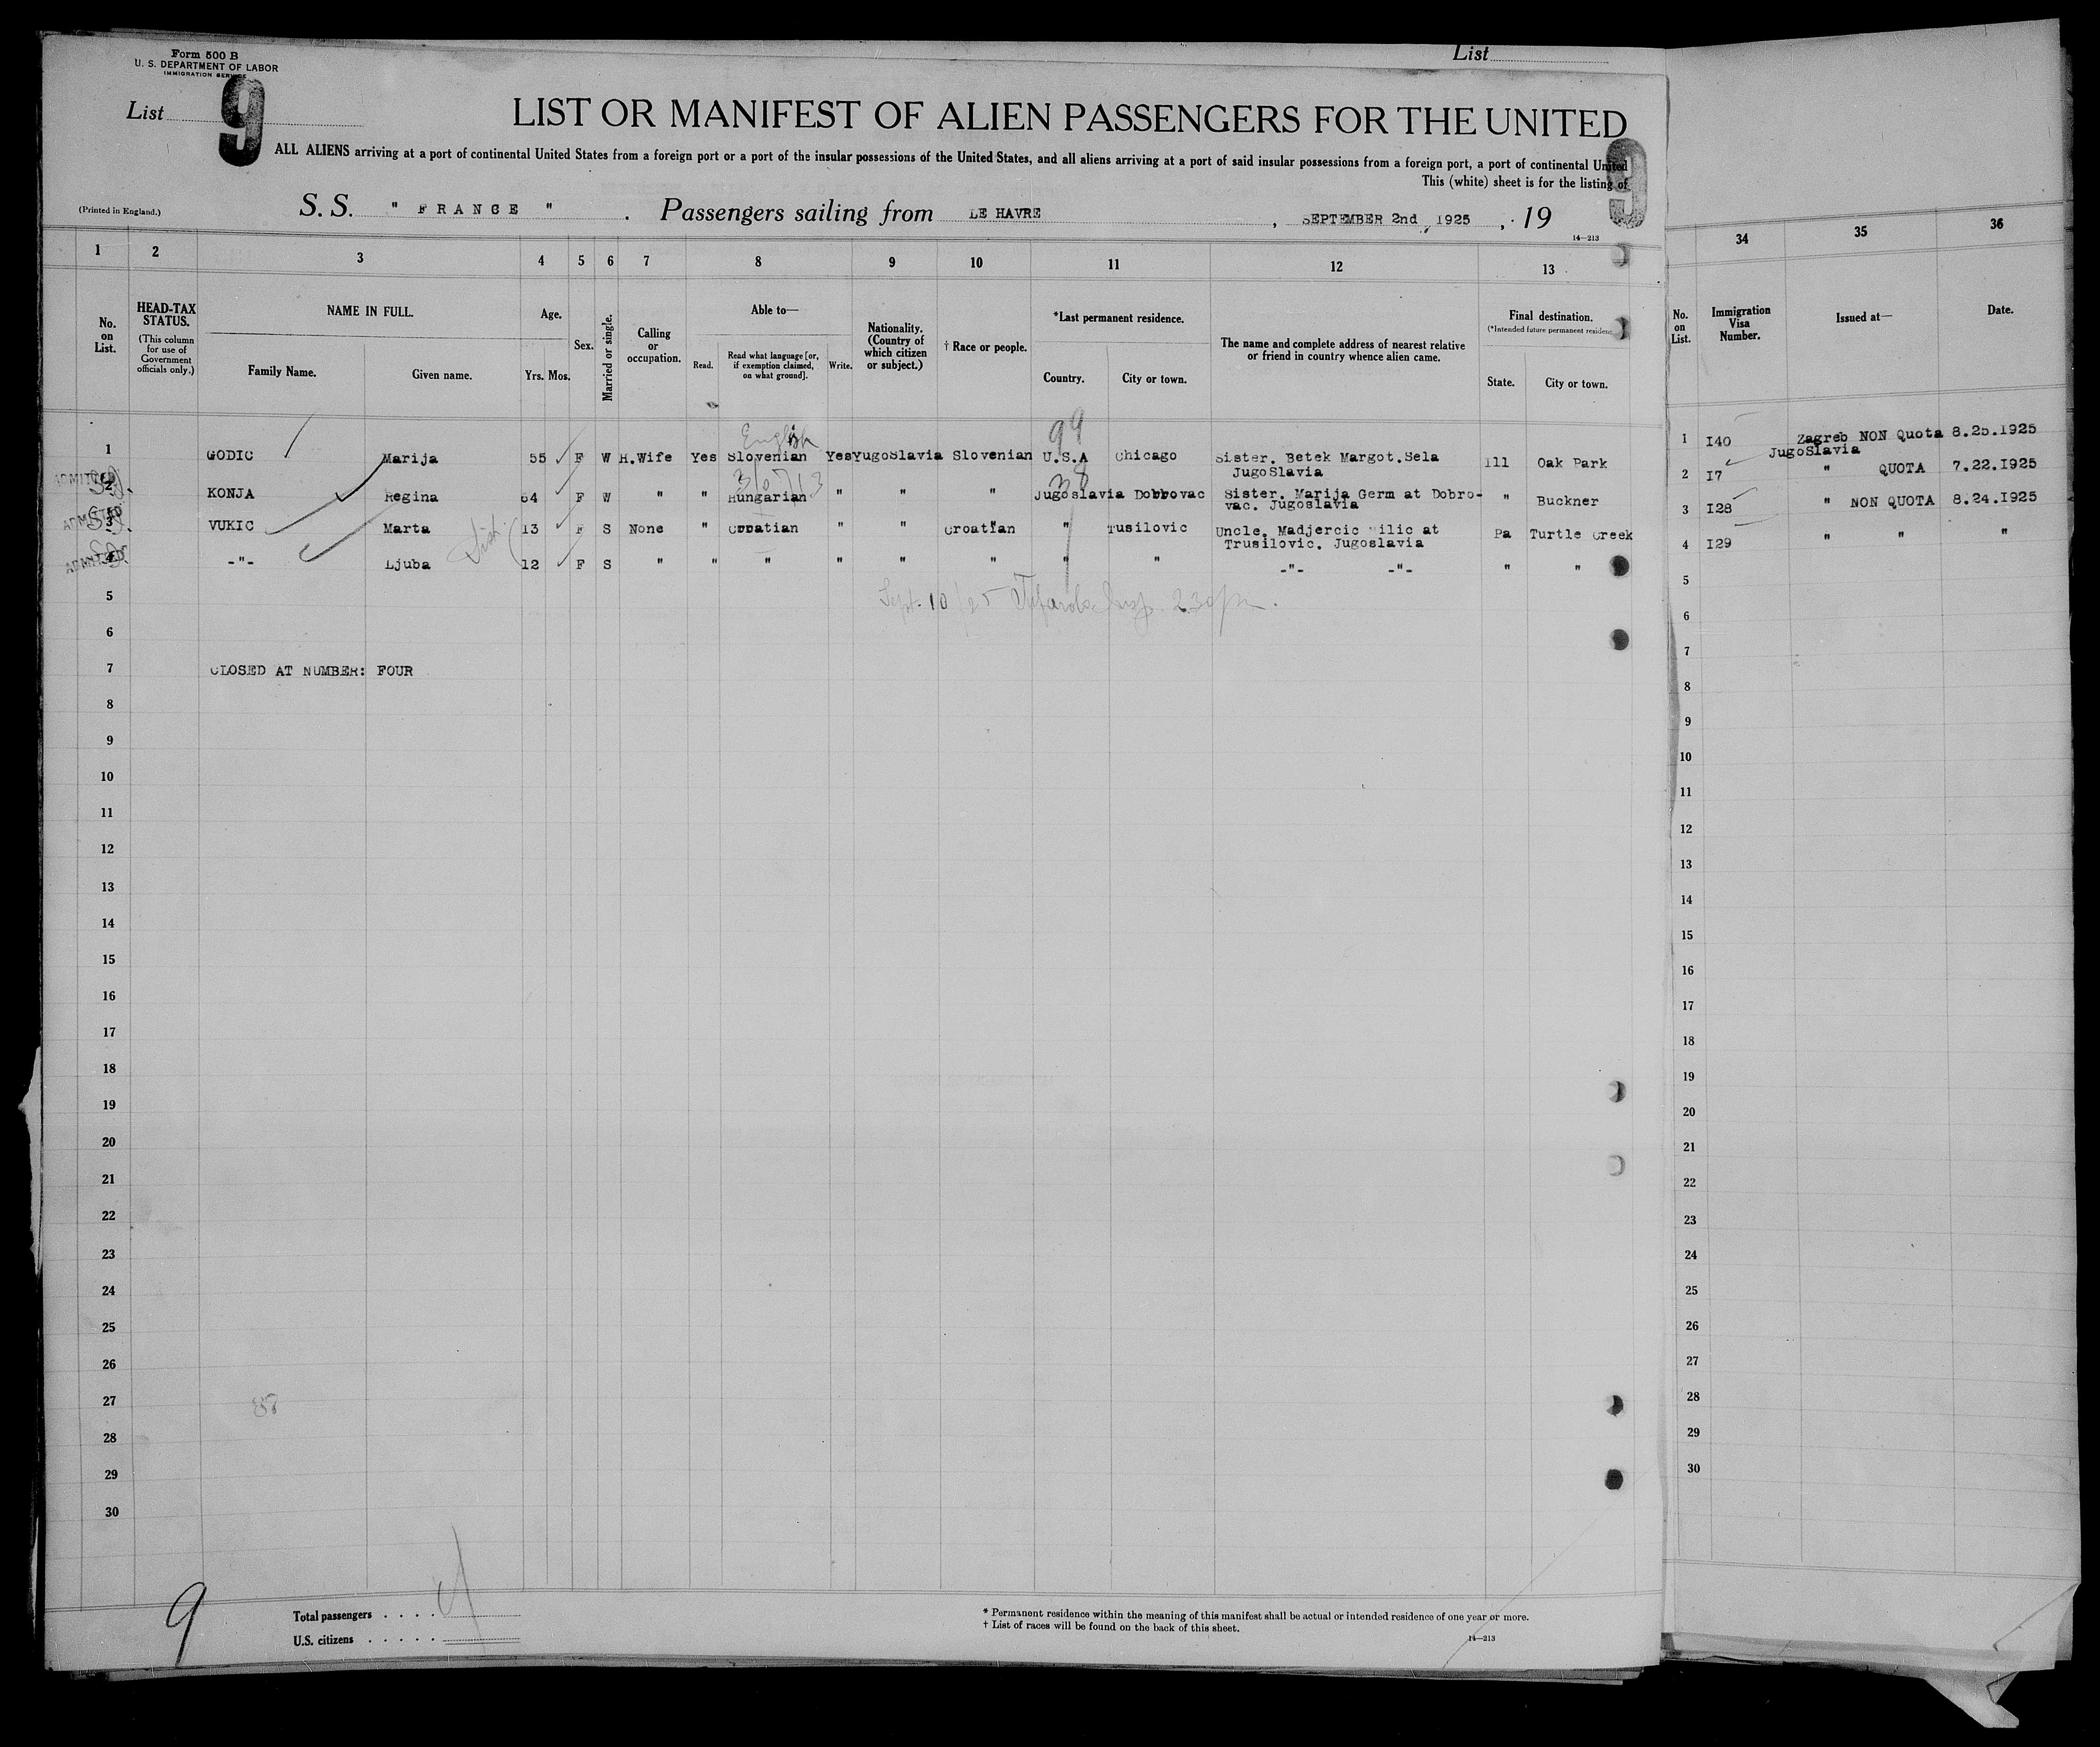 Form 500 B
U. S. DEPARTMENT OF LABOR
IMMIGRATION SERVICE
List
List 9
LIST OR MANIFEST OF ALIEN PASSENGERS FOR THE UNITED
9
ALL ALIENS arriving at a port of continental United States from a foreign port or a port of the insular possessions of the United States, and all aliens arriving at a port of said insular possessions from a foreign port, a port of continental United
This (white) sheet is for the listing of
(Printed in England.)
S. S. " FRANCE " . Passengers sailing from LE HAVRE , SEPTEMBER 2nd, 1925 , 19
14—213
1 2 3 4 5 6 7 8 9 10 11 12 13 34 35 36
No. on List.
HEAD-TAX STATUS.
(This column for use of Government officials only.)
NAME IN FULL.
Family Name. Given name.
Age.
Yrs. Mos.
Sex.
Married or single.
Calling or occupation.
Able to—
Read. Read what language [or, if exemption claimed, on what ground]. Write.
Nationality. (Country of which citizen or subject.)
† Race or people.
*Last permanent residence.
Country. City or town.
The name and complete address of nearest relative or friend in country whence alien came.
Final destination.
(*Intended future permanent residence
State. City or town.
No. on List.
Immigration Visa Number.
Issued at—
Date.
English
99
1 GODIC Marija 55 F W H.Wife Yes Slovenian Yes Yugoslavia Slovenian U.S.A Chicago Sister. Betek Margot.Sela JugoSlavia Ill Oak Park
1 I40 Zagreb JugoSlavia NON Quota 8.25.1925
ADMITTED
38
2 KONJA Regina 64 F W " " Hungarian " " " Jugoslavia Dobrovac Sister. Marija Germ at Dobro-vac. Jugoslavia " Buckner
2 I7 " QUOTA 7.22.1925
ADMITTED
3 VUKIC Marta 13 F S None " Croatian " " Croatian " Tusilovic Uncle. Madjercic Milic at Trusilovic. Jugoslavia Pa Turtle Creek
3 I28 " NON QUOTA 8.24.1925
ADMITTED
4 -"- Ljuba 12 F S " " " " " " " " -"- -"- " "
4 I29 " " "
5
Sept. 10/25
2.30 pm.
6
7 CLOSED AT NUMBER: FOUR
8
9
10
11
12
13
14
15
16
17
18
19
20
21
22
23
24
25
26
27
28
29
30
5
6
7
8
9
10
11
12
13
14
15
16
17
18
19
20
21
22
23
24
25
26
27
28
29
30
9
Total passengers . . . . 4
U.S. citizens . . . . .
* Permanent residence within the meaning of this manifest shall be actual or intended residence of one year or more.
† List of races will be found on the back of this sheet.
14—213